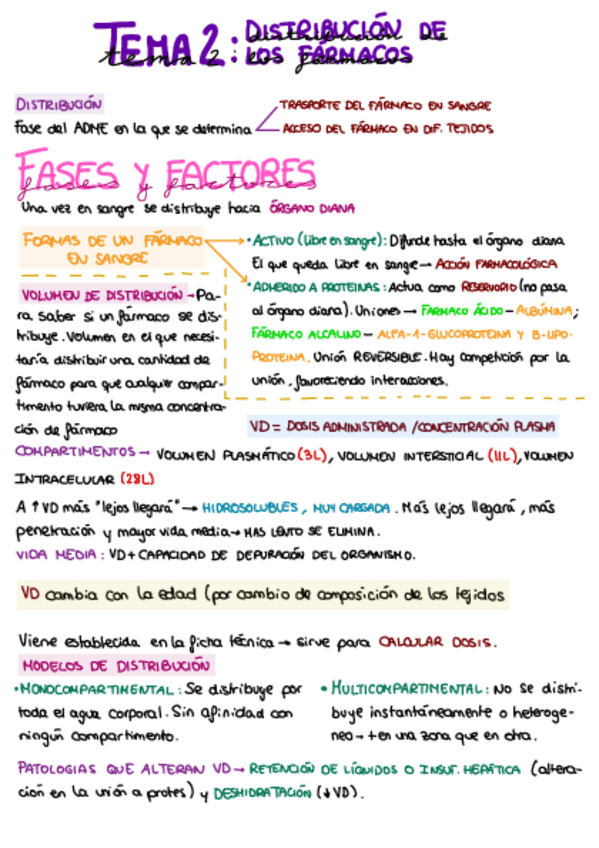 TEMA 2: DISTRIBUCIÓN DE LOS FÁRMACOS
tema 2: distribución de los fármacos
DISTRIBUCIÓN
Fase del ADME en la que se determina
TRASPORTE DEL FÁRMACO EN SANGRE
ACCESO DEL FÁRMACO EN DIF. TEJIDOS
FASES Y FACTORES
fases y factores
Una vez en sangre se distribuye hacia ÓRGANO DIANA
FORMAS DE UN FÁRMACO
EN SANGRE
• ACTIVO (libre en sangre): Difunde hasta el órgano diana
El que queda libre en sangre → ACCIÓN FARMACOLÓGICA
• ADHERIDO A PROTEINAS: Actua como RESERVORIO (no pasa
al órgano diana). Uniones → FARMACO ÁCIDO - ALBÚMINA;
FÁRMACO ALCALINO - ALFA-1-GLUCOPROTEINA Y B-LIPO-
PROTEINA. Unión REVERSIBLE. Hay competición por la
unión, favoreciendo interaciones.
VOLUMEN DE DISTRIBUCIÓN → Pa-
ra saber si un fármaco se dis-
tribuye. Volumen en el que necesi-
taría distribuir una cantidad de
fármaco para que cualquier compar-
timento tuviera la misma concentra-
ción de fármaco
VD = DOSIS ADMINISTRADA / CONCENTRACIÓN PLASMA
COMPARTIMENTOS → VOLUMEN PLASMÁTICO (3L), VOLUMEN INTERSTICIAL (11L), VOLUMEN
INTRACELULAR (28L)
A ↑ VD más "lejos llegará" → HIDROSOLUBLES, MUY CARGADA. Más lejos llegará, más
penetración y mayor vida media → MAS LENTO SE ELIMINA.
VIDA MEDIA: VD + CAPACIDAD DE DEPURACIÓN DEL ORGANISMO.
VD cambia con la edad (por cambio de composición de los tejidos
Viene establecida en la ficha técnica → sirve para CALCULAR DOSIS.
MODELOS DE DISTRIBUCIÓN
• MONOCOMPARTIMENTAL: Se distribuye por
toda el agua corporal. Sin afinidad con
ningún compartimento.
• MULTICOMPARTIMENTAL: No se distri-
buye instantáneamente o heteroge-
neo → + en una zona que en otra.
PATOLOGIAS QUE ALTERAN VD → RETENCIÓN DE LÍQUIDOS O INSUF. HEPÁTICA (altera-
ción en la unión a protes) y DESHIDRATACIÓN (↓ VD).